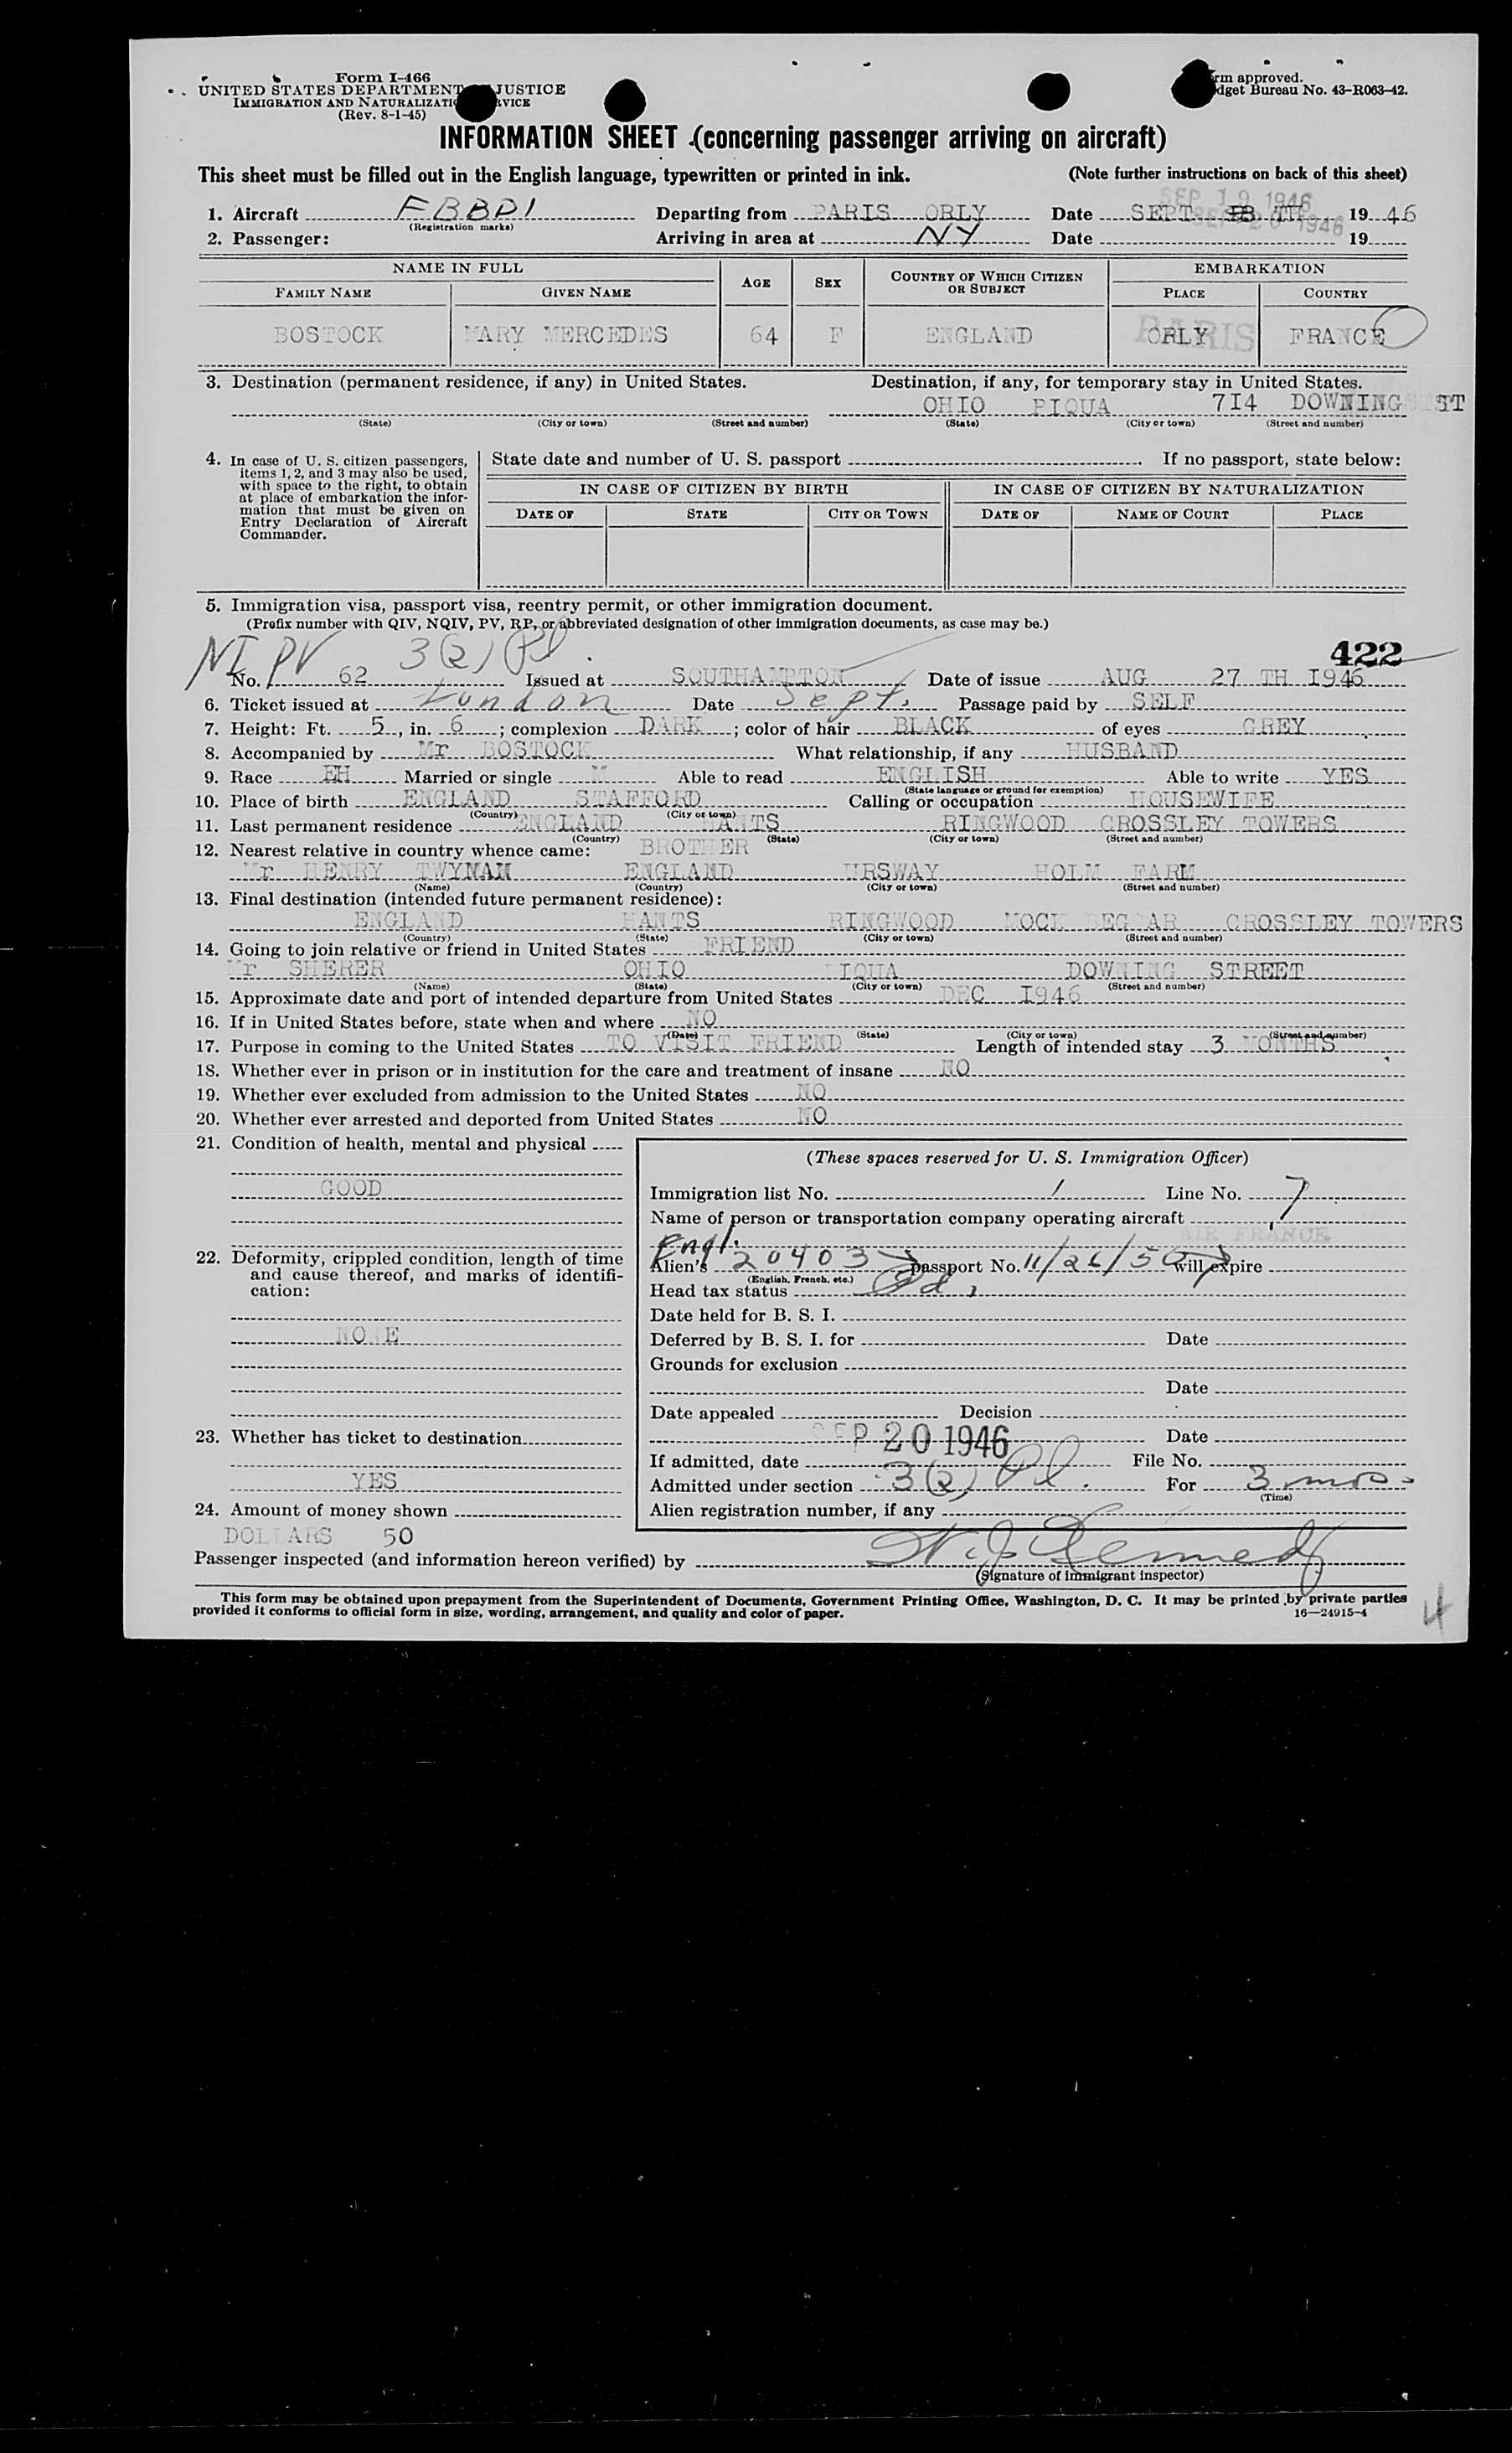 Form I-466
UNITED STATES DEPARTMENT JUSTICE
IMMIGRATION AND NATURALIZATI RVICE
(Rev. 8-1-45)
rm approved.
dget Bureau No. 43-R063-42.
INFORMATION SHEET (concerning passenger arriving on aircraft)
This sheet must be filled out in the English language, typewritten or printed in ink. (Note further instructions on back of this sheet)
SEP 19 1946
1. Aircraft FBBDI Departing from PARIS ORLY Date SEPT. TH 19 46
(Registration marks)
2. Passenger: Arriving in area at NY Date 19
NAME IN FULL AGE SEX COUNTRY OF WHICH CITIZEN OR SUBJECT EMBARKATION
FAMILY NAME GIVEN NAME PLACE COUNTRY
BOSTOCK MARY MERCEDES 64 F ENGLAND PARIS ORLY FRANCE
3. Destination (permanent residence, if any) in United States. Destination, if any, for temporary stay in United States.
OHIO PIQUA 7I4 DOWNING ST
(State) (City or town) (Street and number) (State) (City or town) (Street and number)
4. In case of U. S. citizen passengers, items 1, 2, and 3 may also be used, with space to the right, to obtain at place of embarkation the information that must be given on Entry Declaration of Aircraft Commander.
State date and number of U. S. passport If no passport, state below:
IN CASE OF CITIZEN BY BIRTH IN CASE OF CITIZEN BY NATURALIZATION
DATE OF STATE CITY OR TOWN DATE OF NAME OF COURT PLACE
5. Immigration visa, passport visa, reentry permit, or other immigration document.
(Prefix number with QIV, NQIV, PV, RP, or abbreviated designation of other immigration documents, as case may be.)
NI PV 3(2) 422
No. 62 Issued at SOUTHAMPTON Date of issue AUG 27 TH I946
6. Ticket issued at London Date Sept. Passage paid by SELF
7. Height: Ft. 5, in. 6; complexion DARK; color of hair BLACK of eyes GREY
8. Accompanied by Mr BOSTOCK What relationship, if any HUSBAND
9. Race EH Married or single M Able to read ENGLISH Able to write YES
(State language or ground for exemption)
10. Place of birth ENGLAND STAFFORD Calling or occupation HOUSEWIFE
(Country) (City or town)
11. Last permanent residence ENGLAND HANTS RINGWOOD CROSSLEY TOWERS
(Country) (State) (City or town) (Street and number)
12. Nearest relative in country whence came: BROTHER
Mr HENRY TWYMAM ENGLAND URSWAY HOLM FARM
(Name) (Country) (City or town) (Street and number)
13. Final destination (intended future permanent residence):
ENGLAND HANTS RINGWOOD MOCK BEGGAR CROSSLEY TOWERS
(Country) (State) (City or town) (Street and number)
14. Going to join relative or friend in United States FRIEND
Mr SHERER OHIO PIQUA DOWNING STREET
(Name) (State) (City or town) (Street and number)
15. Approximate date and port of intended departure from United States DEC I946
16. If in United States before, state when and where NO
(Date) (State) (City or town) (Street and number)
17. Purpose in coming to the United States TO VISIT FRIEND Length of intended stay 3 MONTHS
18. Whether ever in prison or in institution for the care and treatment of insane NO
19. Whether ever excluded from admission to the United States NO
20. Whether ever arrested and deported from United States NO
21. Condition of health, mental and physical
GOOD
22. Deformity, crippled condition, length of time and cause thereof, and marks of identification:
NONE
23. Whether has ticket to destination
YES
24. Amount of money shown
DOLLARS 50
(These spaces reserved for U. S. Immigration Officer)
Immigration list No. 1 Line No. 7
Name of person or transportation company operating aircraft
AIR FRANCE
Engl.
Alien's 20403 passport No. 11/26/50 will expire
(English, French, etc.)
Head tax status
Date held for B. S. I.
Deferred by B. S. I. for Date
Grounds for exclusion
Date
Date appealed Decision
SEP 20 1946 Date
If admitted, date File No.
Admitted under section 3(2) For 3 mos
(Time)
Alien registration number, if any
Passenger inspected (and information hereon verified) by
(Signature of immigrant inspector)
This form may be obtained upon prepayment from the Superintendent of Documents, Government Printing Office, Washington, D. C. It may be printed by private parties
provided it conforms to official form in size, wording, arrangement, and quality and color of paper. 16—24915-4
4